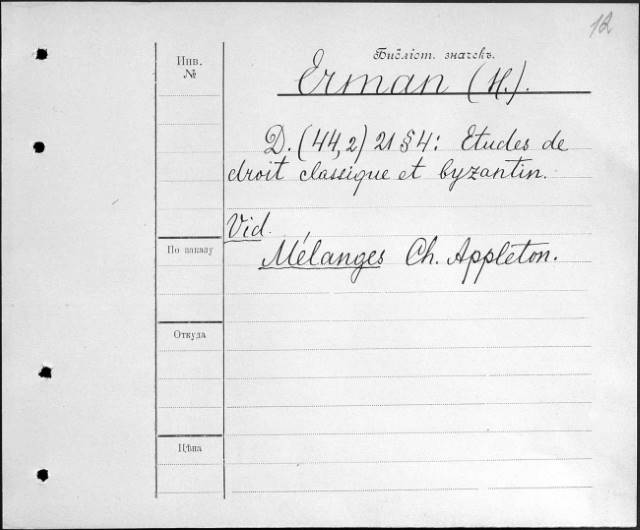 12
Инв.
№
Библіот. значекъ.
Erman (H.).
D. (44,2) 21 § 4: Etudes de
droit classique et byzantin.
Vid.
По заказу
Mélanges Ch. Appleton.
Откуда
Цѣна